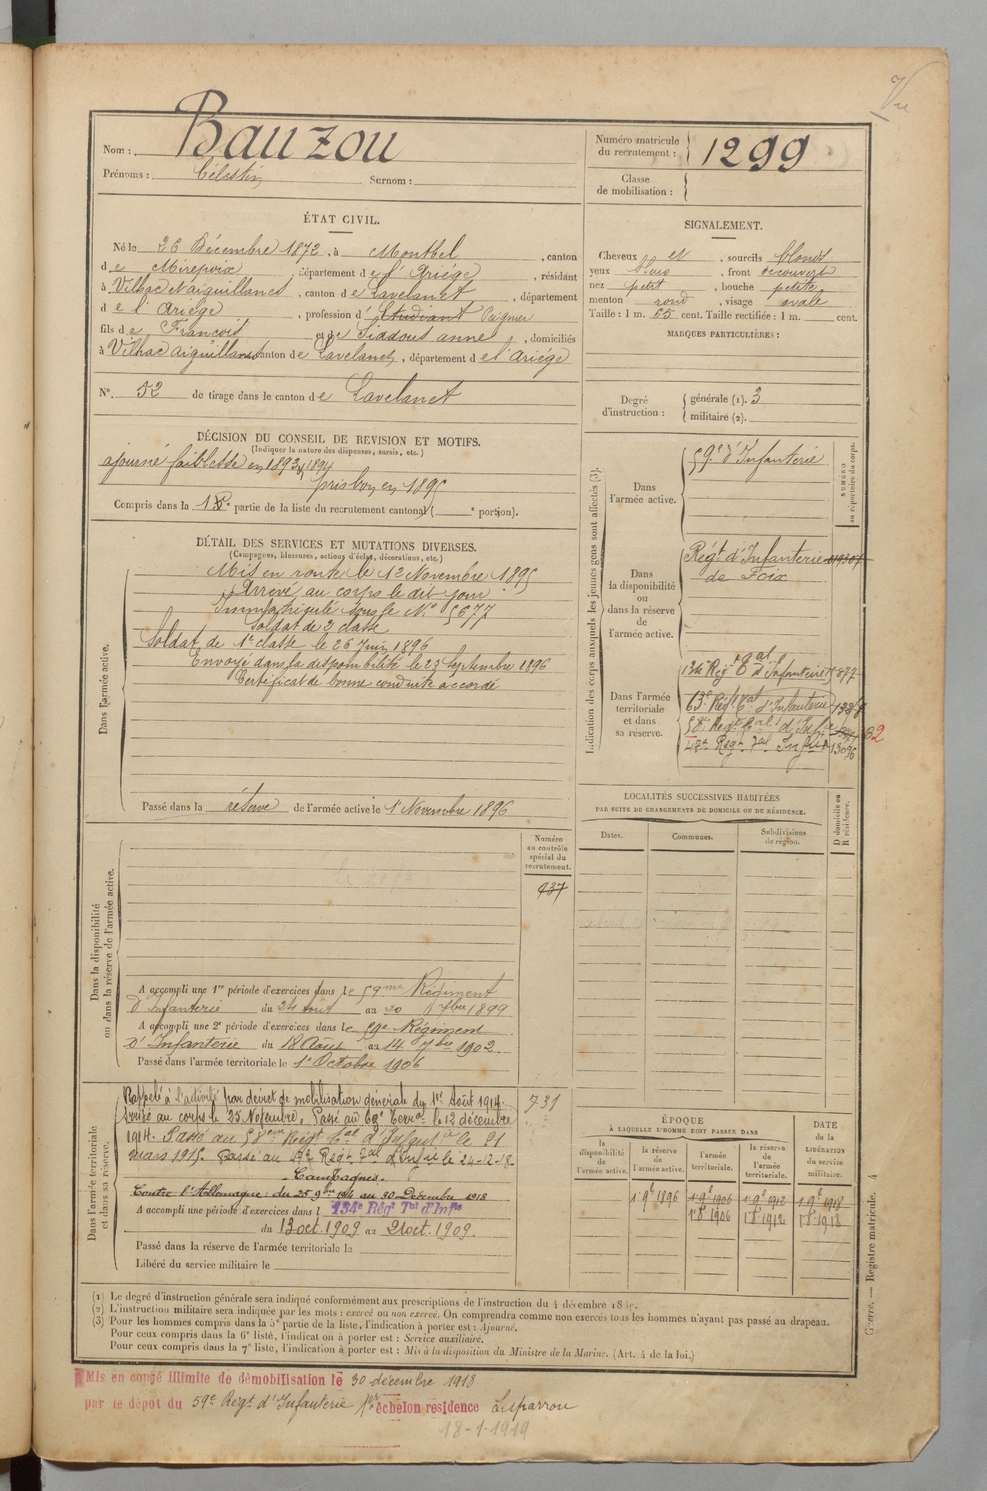 Vu
Nom : Bauzou
Prénoms : Célestin Surnom :
Numéro matricule du recrutement : 1299
Classe de mobilisation :
ÉTAT CIVIL.
Né le 26 Décembre 1872, à Montbel, canton
de Mirepoix, département de l'Ariége, résidant
à Vilhac et aiguillanes, canton de Lavelanet, département
de l'Ariége, profession d' Etudiant
fils de François et de Siadous anne, domiciliés
à Vilhac aiguillanes canton de Lavelanet, département de l'Ariége
N°. 52 de tirage dans le canton de Lavelanet
SIGNALEMENT.
Cheveux et, sourcils blonds
yeux bleus, front découvert
nez petit, bouche petite
menton rond, visage ovale
Taille : 1 m. 65 cent. Taille rectifiée : 1 m. cent.
MARQUES PARTICULIÈRES :
Degré d'instruction : générale (1). 3
militaire (2).
DÉCISION DU CONSEIL DE REVISION ET MOTIFS.
(Indiquer la nature des dispenses, sursis, etc.)
ajourné faiblesse en 1893 & 1894
pris bon en 1895
Compris dans la 1e partie de la liste du recrutement cantonal ( e portion).
DÉTAIL DES SERVICES ET MUTATIONS DIVERSES.
(Campagnes, blessures, actions d'éclat, décorations, etc.)
Dans l'armée active.
Mis en route le 12 Novembre 1895
Arrivé au corps le dit jour
Immatriculé sous le N° 5677
Soldat de 2 classe
Soldat de 1re classe le 26 Juin 1896
Envoyé dans la disponibilité le 23 Septembre 1896
Certificat de bonne conduite accordé
Passé dans la réserve de l'armée active le 1er Novembre 1896
Indication des corps auxquels les jeunes gens sont affectés (3).
NUMÉRO au répertoire du corps.
Dans l'armée active.
59e d'Infanterie
Dans la disponibilité ou dans la réserve de l'armée active.
Régt d'Infanterie
de Foix
Dans l'armée territoriale et dans sa réserve.
134e Régt Tal d'Infanterie
63e Régt Tal d'Infanterie
58e Régt Tal d'Infie
Régt Tal Infie 13096
LOCALITÉS SUCCESSIVES HABITÉES
PAR SUITE DE CHANGEMENTS DE DOMICILE OU DE RÉSIDENCE.
Dates. Communes. Subdivisions de région. D domicile ou R résidence.
Dans la disponibilité ou dans la réserve de l'armée active.
Numéro au contrôle spécial du recrutement.
937
A accompli une 1re période d'exercices dans le 59me Régiment
d'Infanterie du 24 aout au 20 7bre 1899
A accompli une 2e période d'exercices dans le 59e Régiment
d'Infanterie du 18 Août au 14 7bre 1902
Passé dans l'armée territoriale le 1er Octobre 1906
Dans l'armée territoriale et dans sa réserve.
731
Rappelé à l'activité par décret de mobilisation générale du 1er Août 1914.
Arrivé au corps le 25 Novembre. Passé au 63e Terral le 12 décembre
1914. Passé au 58eme Régt Tal d'Infantie le 21
mars 1915. Passé au Régt Tal d'Infie le 24-12-18
Campagnes.
Contre l'Allemagne : du 25 9bre 1914 au 30 Décembre 1918
A accompli une période d'exercices dans l 134e Régt Tal d'Infie
du 13 oct. 1909 au 21 oct. 1909.
Passé dans la réserve de l'armée territoriale le
Libéré du service militaire le
ÉPOQUE
À LAQUELLE L'HOMME DOIT PASSER DANS
la disponibilité de l'armée active. la réserve de l'armée active. l'armée territoriale. la réserve de l'armée territoriale. DATE de la LIBÉRATION du service militaire.
1er 9e 1896 1er 9e 1906 1er 9e 1912 1er 9e 1918
1er 8e 1906 1er 8e 1912 1er 8e 1918
(1) Le degré d'instruction générale sera indiqué conformément aux prescriptions de l'instruction du 4 décembre 18
(2) L'instruction militaire sera indiquée par les mots : exercé ou non exercé. On comprendra comme non exercés tous les hommes n'ayant pas passé au drapeau.
(3) Pour les hommes compris dans la 5e partie de la liste, l'indication à porter est : Ajourné.
Pour ceux compris dans la 6e liste, l'indication à porter est : Service auxiliaire.
Pour ceux compris dans la 7e liste, l'indication à porter est : Mis à la disposition du Ministre de la Marine. (Art. 4 de la loi.)
Guerre. — Registre matricule. 4
Mis en congé illimité de démobilisation le 30 décembre 1918
par le dépôt du 59e Régt d'Infanterie échelon résidence Lesparrou
18-1-1919